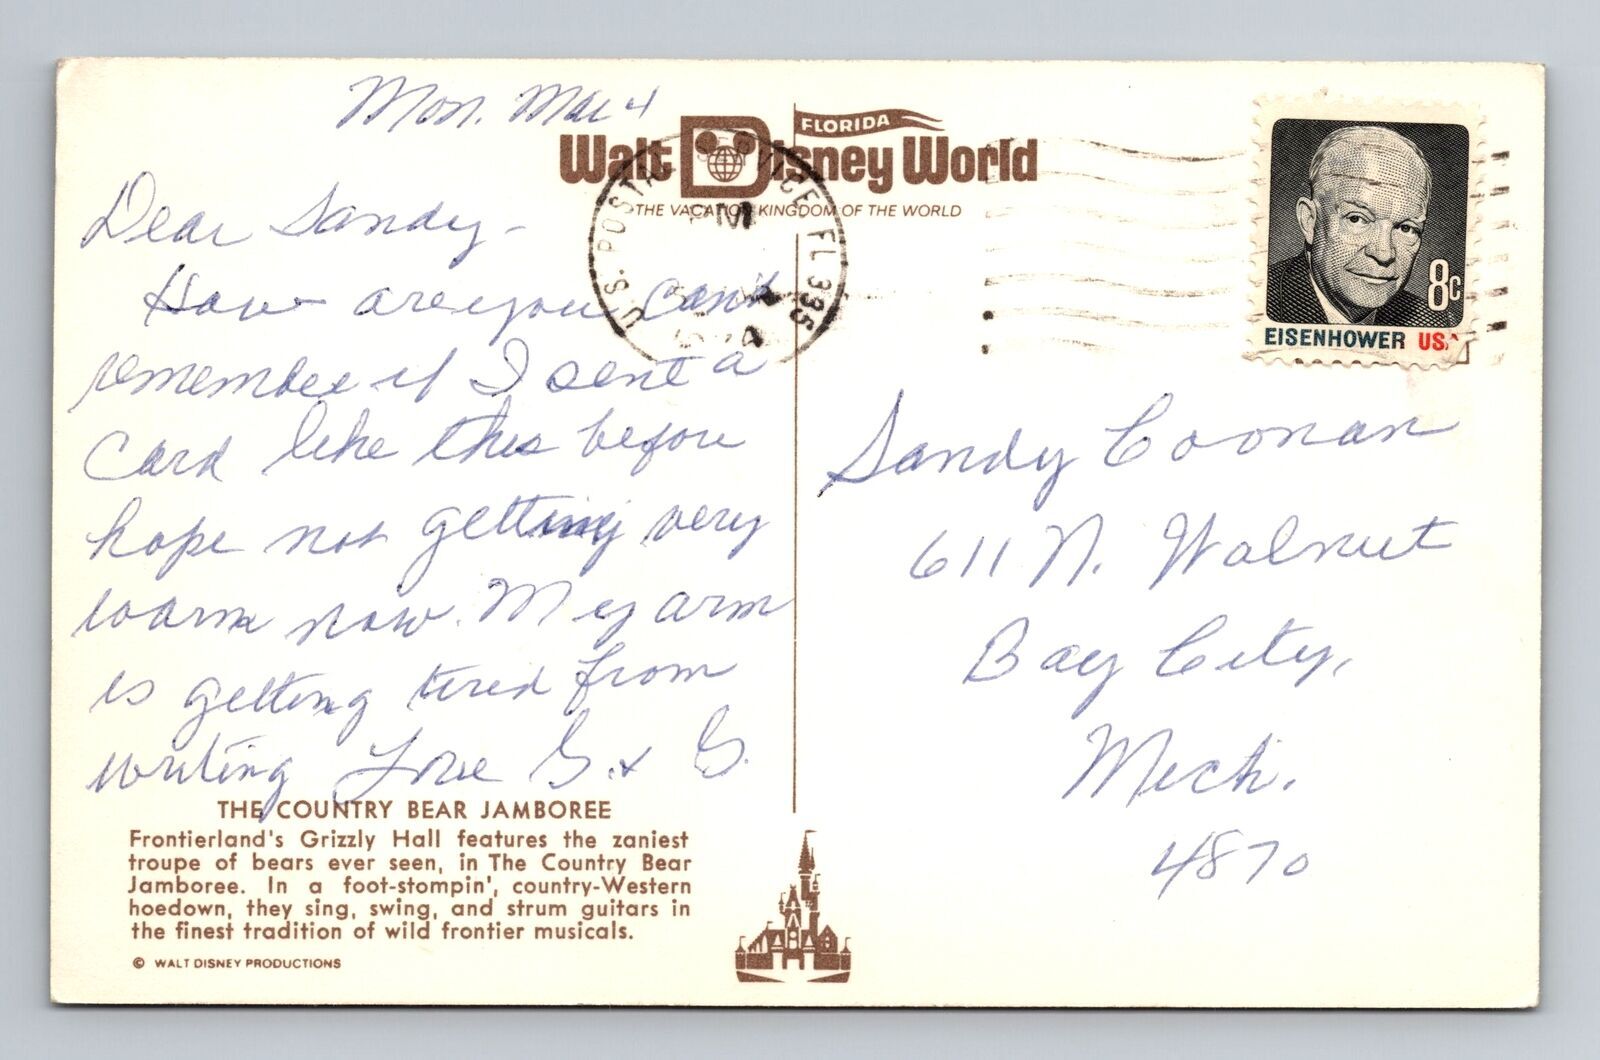 Mon. Mar 4
FLORIDA
Walt Disney World
THE VACATION KINGDOM OF THE WORLD
U.S. POSTAL SERVICE FL 335
PM
8c
EISENHOWER USA
Dear Sandy-
How are you can't
remember if I sent a
card like this before
hope not getting very
warm now. My arm
is getting tired from
writing Love G. & G.
Sandy Coonan
611 N. Walnut
Bay City,
Mich.
4870
THE COUNTRY BEAR JAMBOREE
Frontierland's Grizzly Hall features the zaniest
troupe of bears ever seen, in The Country Bear
Jamboree. In a foot-stompin', country-Western
hoedown, they sing, swing, and strum guitars in
the finest tradition of wild frontier musicals.
© WALT DISNEY PRODUCTIONS